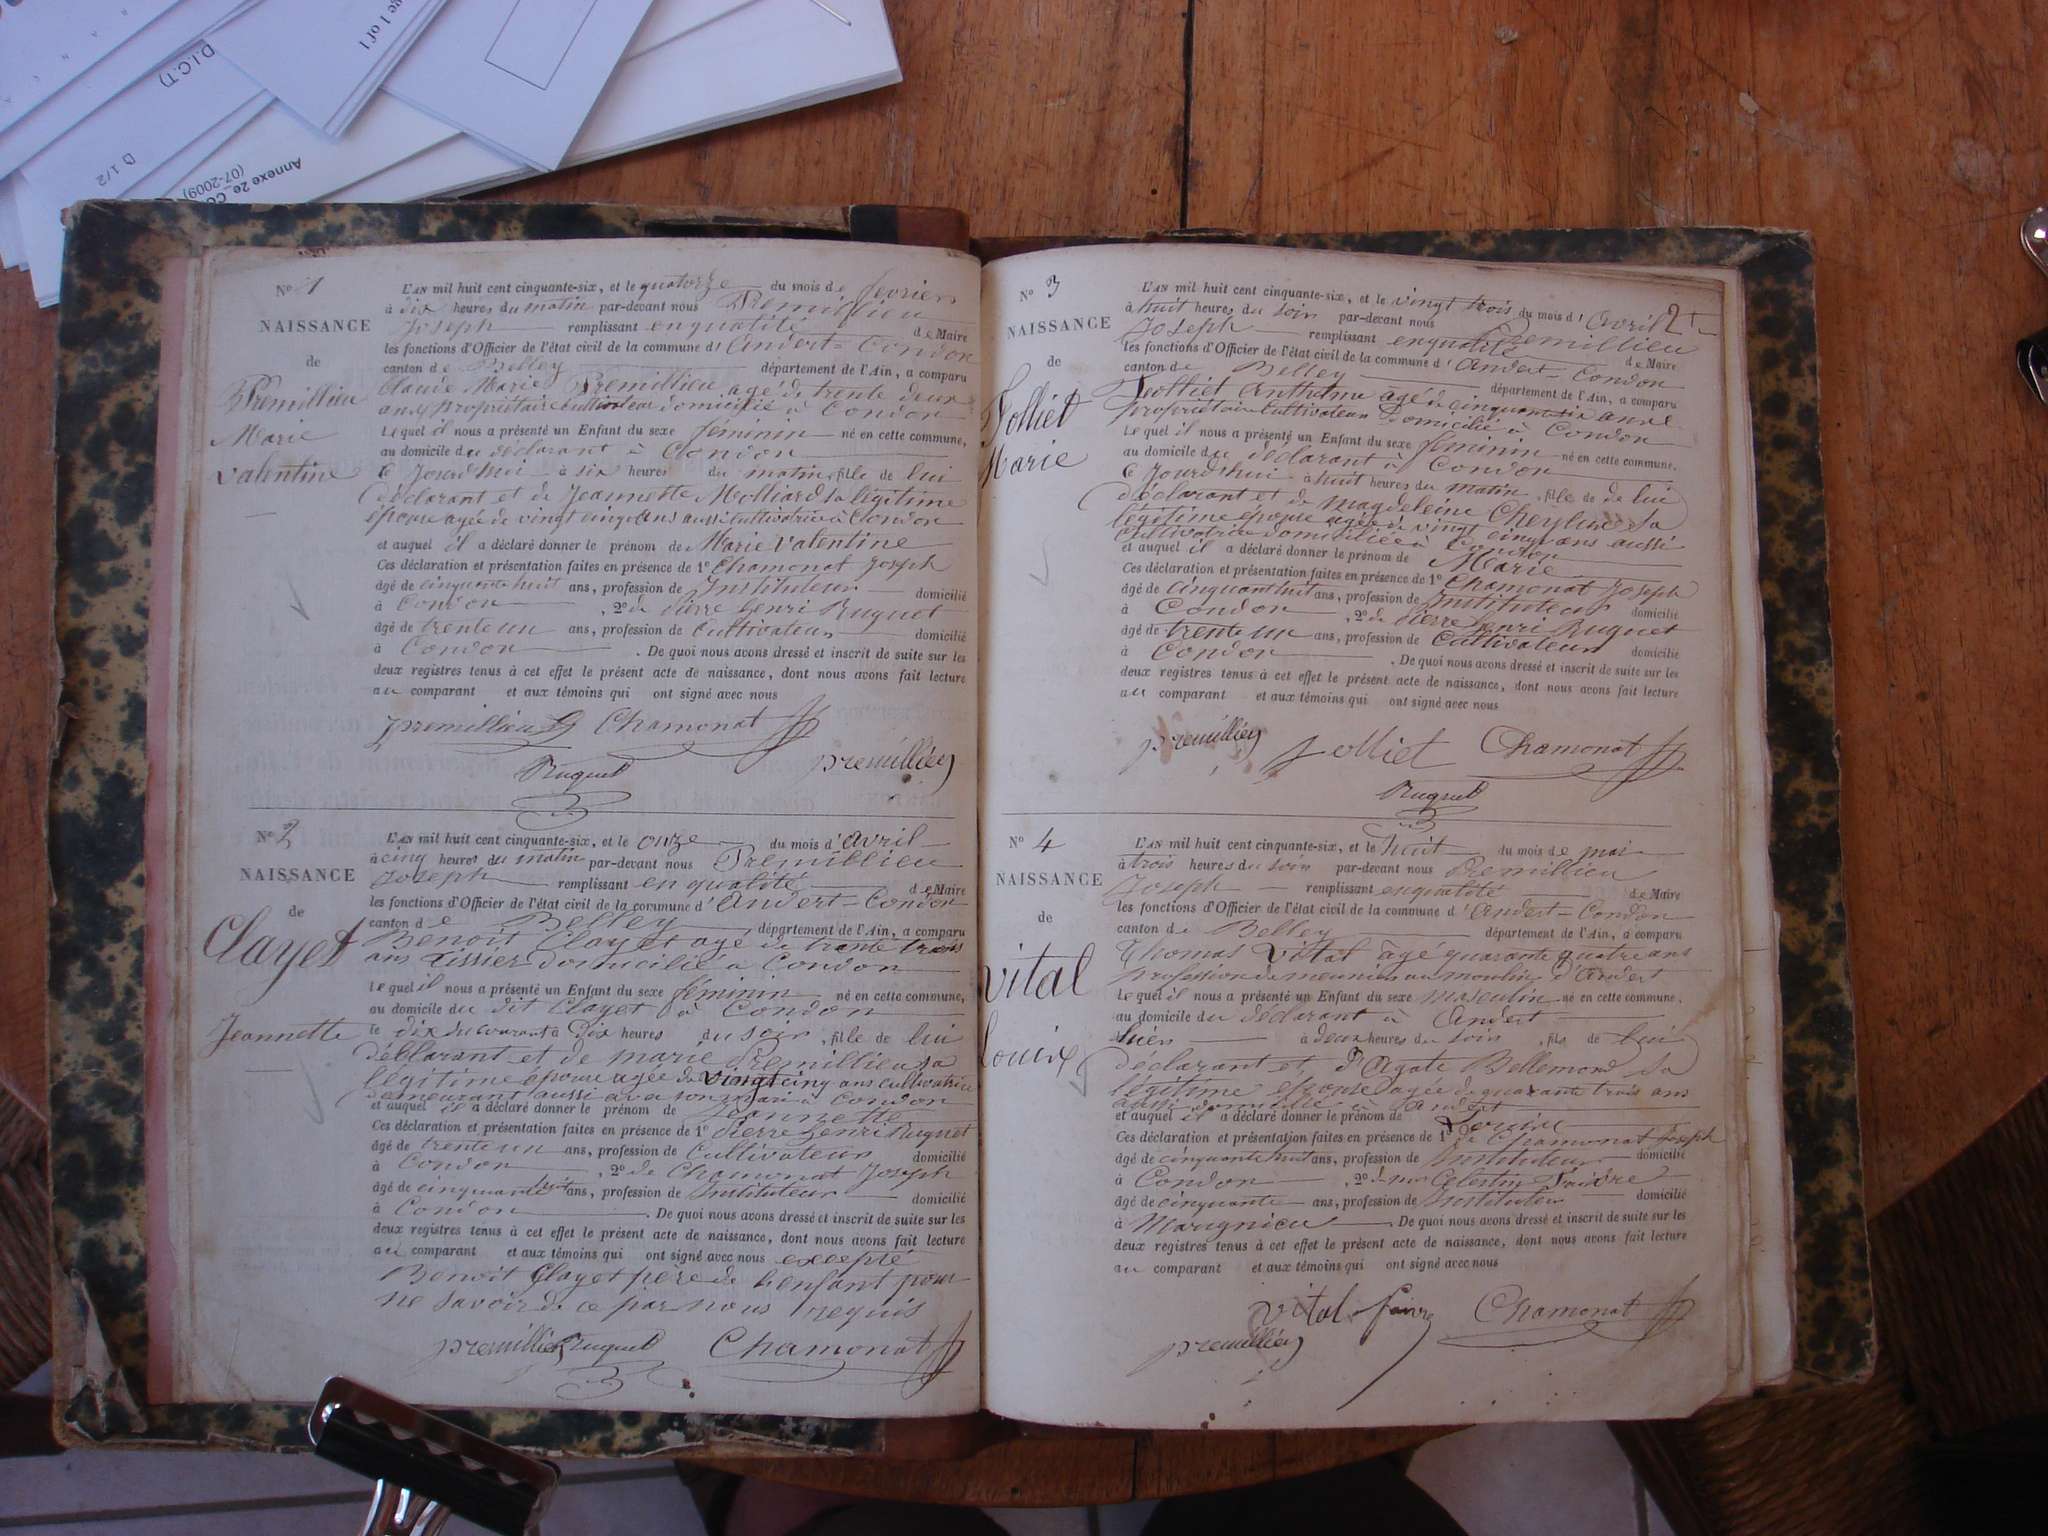 Page 1 of 1
D.I.C.T)
D 1/2
Annexe 2e_CO
(07-2009)
N° 1
NAISSANCE
de
Premillieu
Marie
Valentine
L'AN mil huit cent cinquante-six, et le quatorze du mois de fevrier
à dix heures du matin par-devant nous Premillieu
Joseph remplissant en qualité de Maire
les fonctions d'Officier de l'état civil de la commune d'Andert-Condon
canton de Belley département de l'Ain, a comparu
Claude Marie Premillieu agé de trente deux
ans propriétaire cultivateur domicilié à Condon
Lequel il nous a présenté un Enfant du sexe féminin né en cette commune,
au domicile du déclarant à Condon
Ce Jourdhui à six heures du matin, fille de lui
déclarant et de Jeannette Molliard sa légitime
épouse agée de vingt cinq ans aussi cultivatrice à Condon
et auquel il a déclaré donner le prénom de Marie Valentine
Ces déclaration et présentation faites en présence de 1° Chamonat Joseph
âgé de cinquante huit ans, profession de Instituteur domicilié
à Condon, 2° de Pierre henri Ruguet
âgé de trente un ans, profession de Cultivateur domicilié
à Condon. De quoi nous avons dressé et inscrit de suite sur les
deux registres tenus à cet effet le présent acte de naissance, dont nous avons fait lecture
au comparant et aux témoins qui ont signé avec nous
premillieu Chamonat
Ruguet premillieu
N° 2
NAISSANCE
de
Clayet
Jeannette
L'AN mil huit cent cinquante-six, et le onze du mois d'avril
à cinq heures du matin par-devant nous Premillieu
Joseph remplissant en qualité de Maire
les fonctions d'Officier de l'état civil de la commune d'Andert-Condon
canton de Belley, département de l'Ain, a comparu
Benoit Clayet agé de trente trois
ans tissier domicilié à Condon
Lequel il nous a présenté un Enfant du sexe féminin né en cette commune,
au domicile du dit Clayet à Condon
le dix du courant à dix heures du soir, fille de lui
déclarant et de marie Premillieu sa
légitime épouse agée de vingt cinq ans cultivatrice
demeurant aussi avec son mari à Condon
et auquel il a déclaré donner le prénom de Jeannette
Ces déclaration et présentation faites en présence de 1° Pierre henri Ruguet
âgé de trente un ans, profession de Cultivateur domicilié
à Condon, 2° de Chamonat Joseph
âgé de cinquante huit ans, profession de Instituteur domicilié
à Condon. De quoi nous avons dressé et inscrit de suite sur les
deux registres tenus à cet effet le présent acte de naissance, dont nous avons fait lecture
au comparant et aux témoins qui ont signé avec nous excepté
Benoit Clayet père de l'enfant pour
ne savoir de ce par nous requis
premillieu Ruguet Chamonat
N° 3
NAISSANCE
de
Folliet
Marie
2
L'AN mil huit cent cinquante-six, et le vingt trois du mois d'avril
à huit heures du soir par-devant nous Premillieu
Joseph remplissant en qualité de Maire
les fonctions d'Officier de l'état civil de la commune d'Andert-Condon
canton de Belley département de l'Ain, a comparu
Folliet Anthelme agé de cinquante six ans
propriétaire Cultivateur domicilié à Condon
Lequel il nous a présenté un Enfant du sexe féminin né en cette commune,
au domicile du déclarant à Condon
Ce Jourdhui à huit heures du matin, fille de de lui
déclarant et de Magdeleine sa
légitime épouse agée de vingt cinq ans aussi
cultivatrice domiciliée à Condon
et auquel il a déclaré donner le prénom de Marie
Ces déclaration et présentation faites en présence de 1° Chamonat Joseph
âgé de cinquanthuit ans, profession de Instituteur domicilié
à Condon, 2° de Pierre henri Ruguet
âgé de trente un ans, profession de Cultivateur domicilié
à Condon. De quoi nous avons dressé et inscrit de suite sur les
deux registres tenus à cet effet le présent acte de naissance, dont nous avons fait lecture
au comparant et aux témoins qui ont signé avec nous
premillieu folliet Chamonat
Ruguet
N° 4
NAISSANCE
de
Vital
Louise
L'AN mil huit cent cinquante-six, et le huit du mois de mai
à trois heures du soir par-devant nous Premillieu
Joseph remplissant en qualité de Maire
les fonctions d'Officier de l'état civil de la commune d'Andert-Condon
canton de Belley département de l'Ain, a comparu
Thomas Vital âgé quarante quatre ans
profession de meunier au moulin d'Andert
Lequel il nous a présenté un Enfant du sexe masculin né en cette commune,
au domicile du déclarant à Andert
hier à deux heures du soir, fils de lui
déclarant et d'Agate Bellemond sa
légitime épouse agée de quarante trois ans
aussi domiciliée à Andert
et auquel il a déclaré donner le prénom de
Ces déclaration et présentation faites en présence de 1° de Chamonat Joseph
âgé de cinquante huit ans, profession de Instituteur domicilié
à Condon, 2° de Celestin Faivre
âgé de cinquante ans, profession de Instituteur domicilié
à Marignieu. De quoi nous avons dressé et inscrit de suite sur les
deux registres tenus à cet effet le présent acte de naissance, dont nous avons fait lecture
au comparant et aux témoins qui ont signé avec nous
vital faivre Chamonat
premillieu